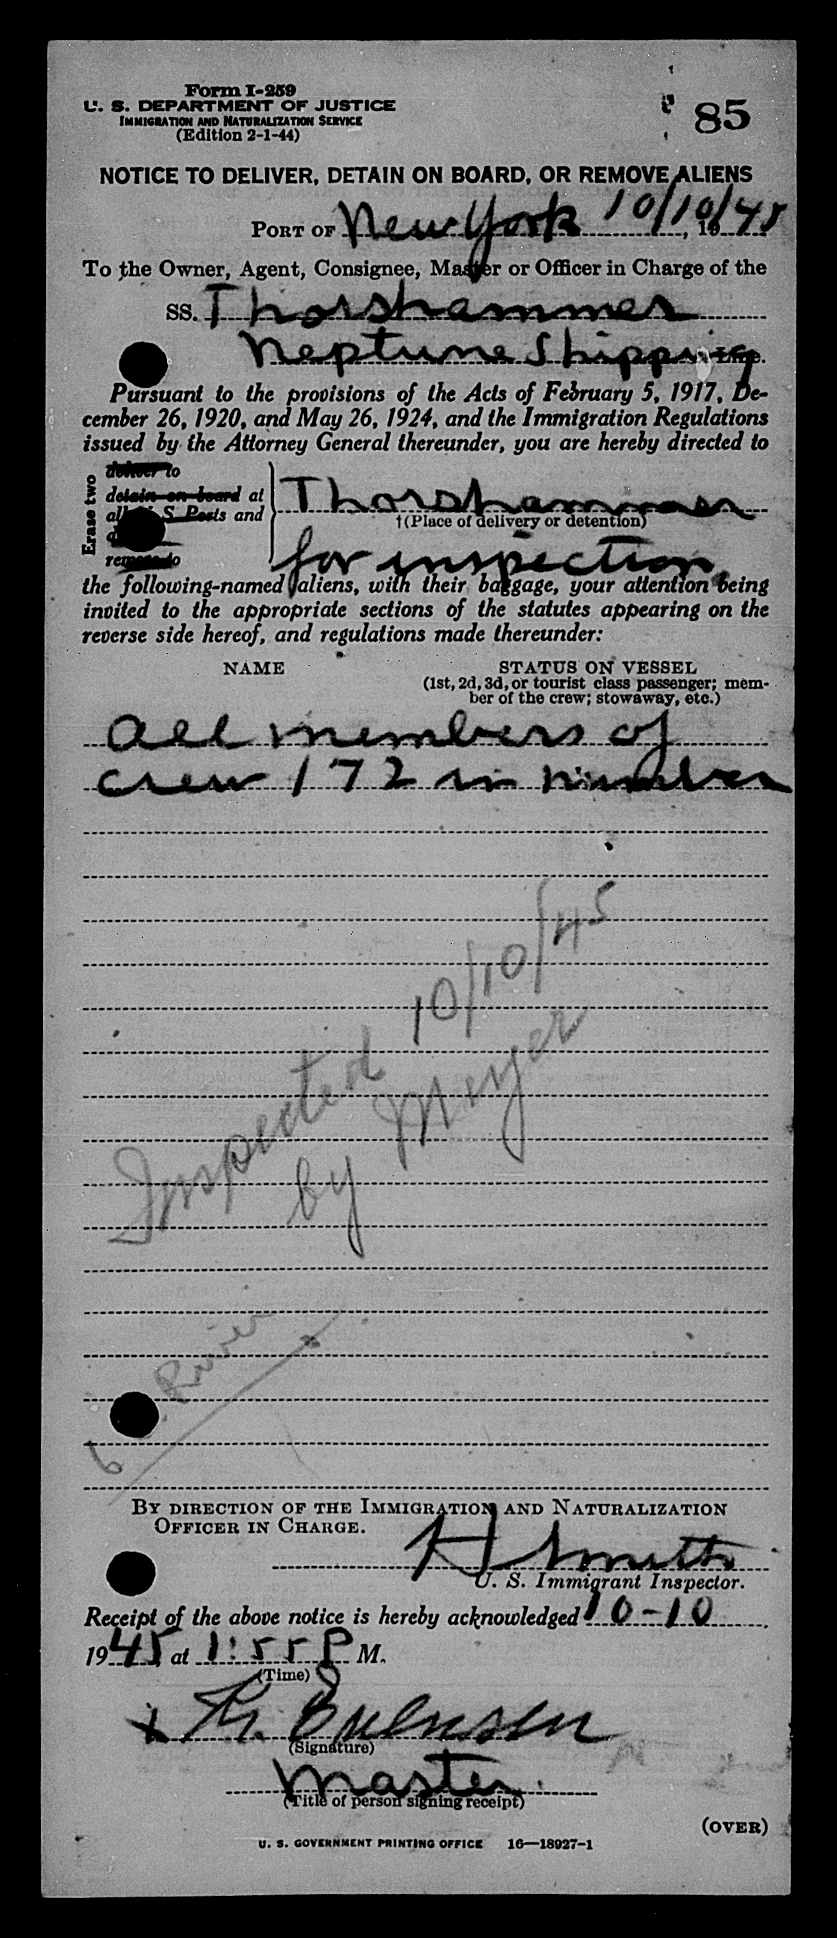 Form I-259
U. S. DEPARTMENT OF JUSTICE
IMMIGRATION AND NATURALIZATION SERVICE
(Edition 2-1-44)
85
NOTICE TO DELIVER, DETAIN ON BOARD, OR REMOVE ALIENS
PORT OF New York 10/10/45, 19
To the Owner, Agent, Consignee, Master or Officer in Charge of the
SS. Thorshammer
Neptune Shipping Line.
Pursuant to the provisions of the Acts of February 5, 1917, De-
cember 26, 1920, and May 26, 1924, and the Immigration Regulations
issued by the Attorney General thereunder, you are hereby directed to
Erase two
deliver to
detain on board at
all U. S. Ports and
remove to
Thorshammer
†(Place of delivery or detention)
for inspection
the following-named aliens, with their baggage, your attention being
invited to the appropriate sections of the statutes appearing on the
reverse side hereof, and regulations made thereunder:
NAME
STATUS ON VESSEL
(1st, 2d, 3d, or tourist class passenger; mem-
ber of the crew; stowaway, etc.)
all members of
crew 172 in number
Inspected 10/10/45
by Meyer
River
BY DIRECTION OF THE IMMIGRATION AND NATURALIZATION
OFFICER IN CHARGE.
H Smith
U. S. Immigrant Inspector.
Receipt of the above notice is hereby acknowledged 10-10,
1945 at 1:55 P M.
(Time)
x
(Signature)
Master.
(Title of person signing receipt)
(OVER)
U. S. GOVERNMENT PRINTING OFFICE 16—18927-1